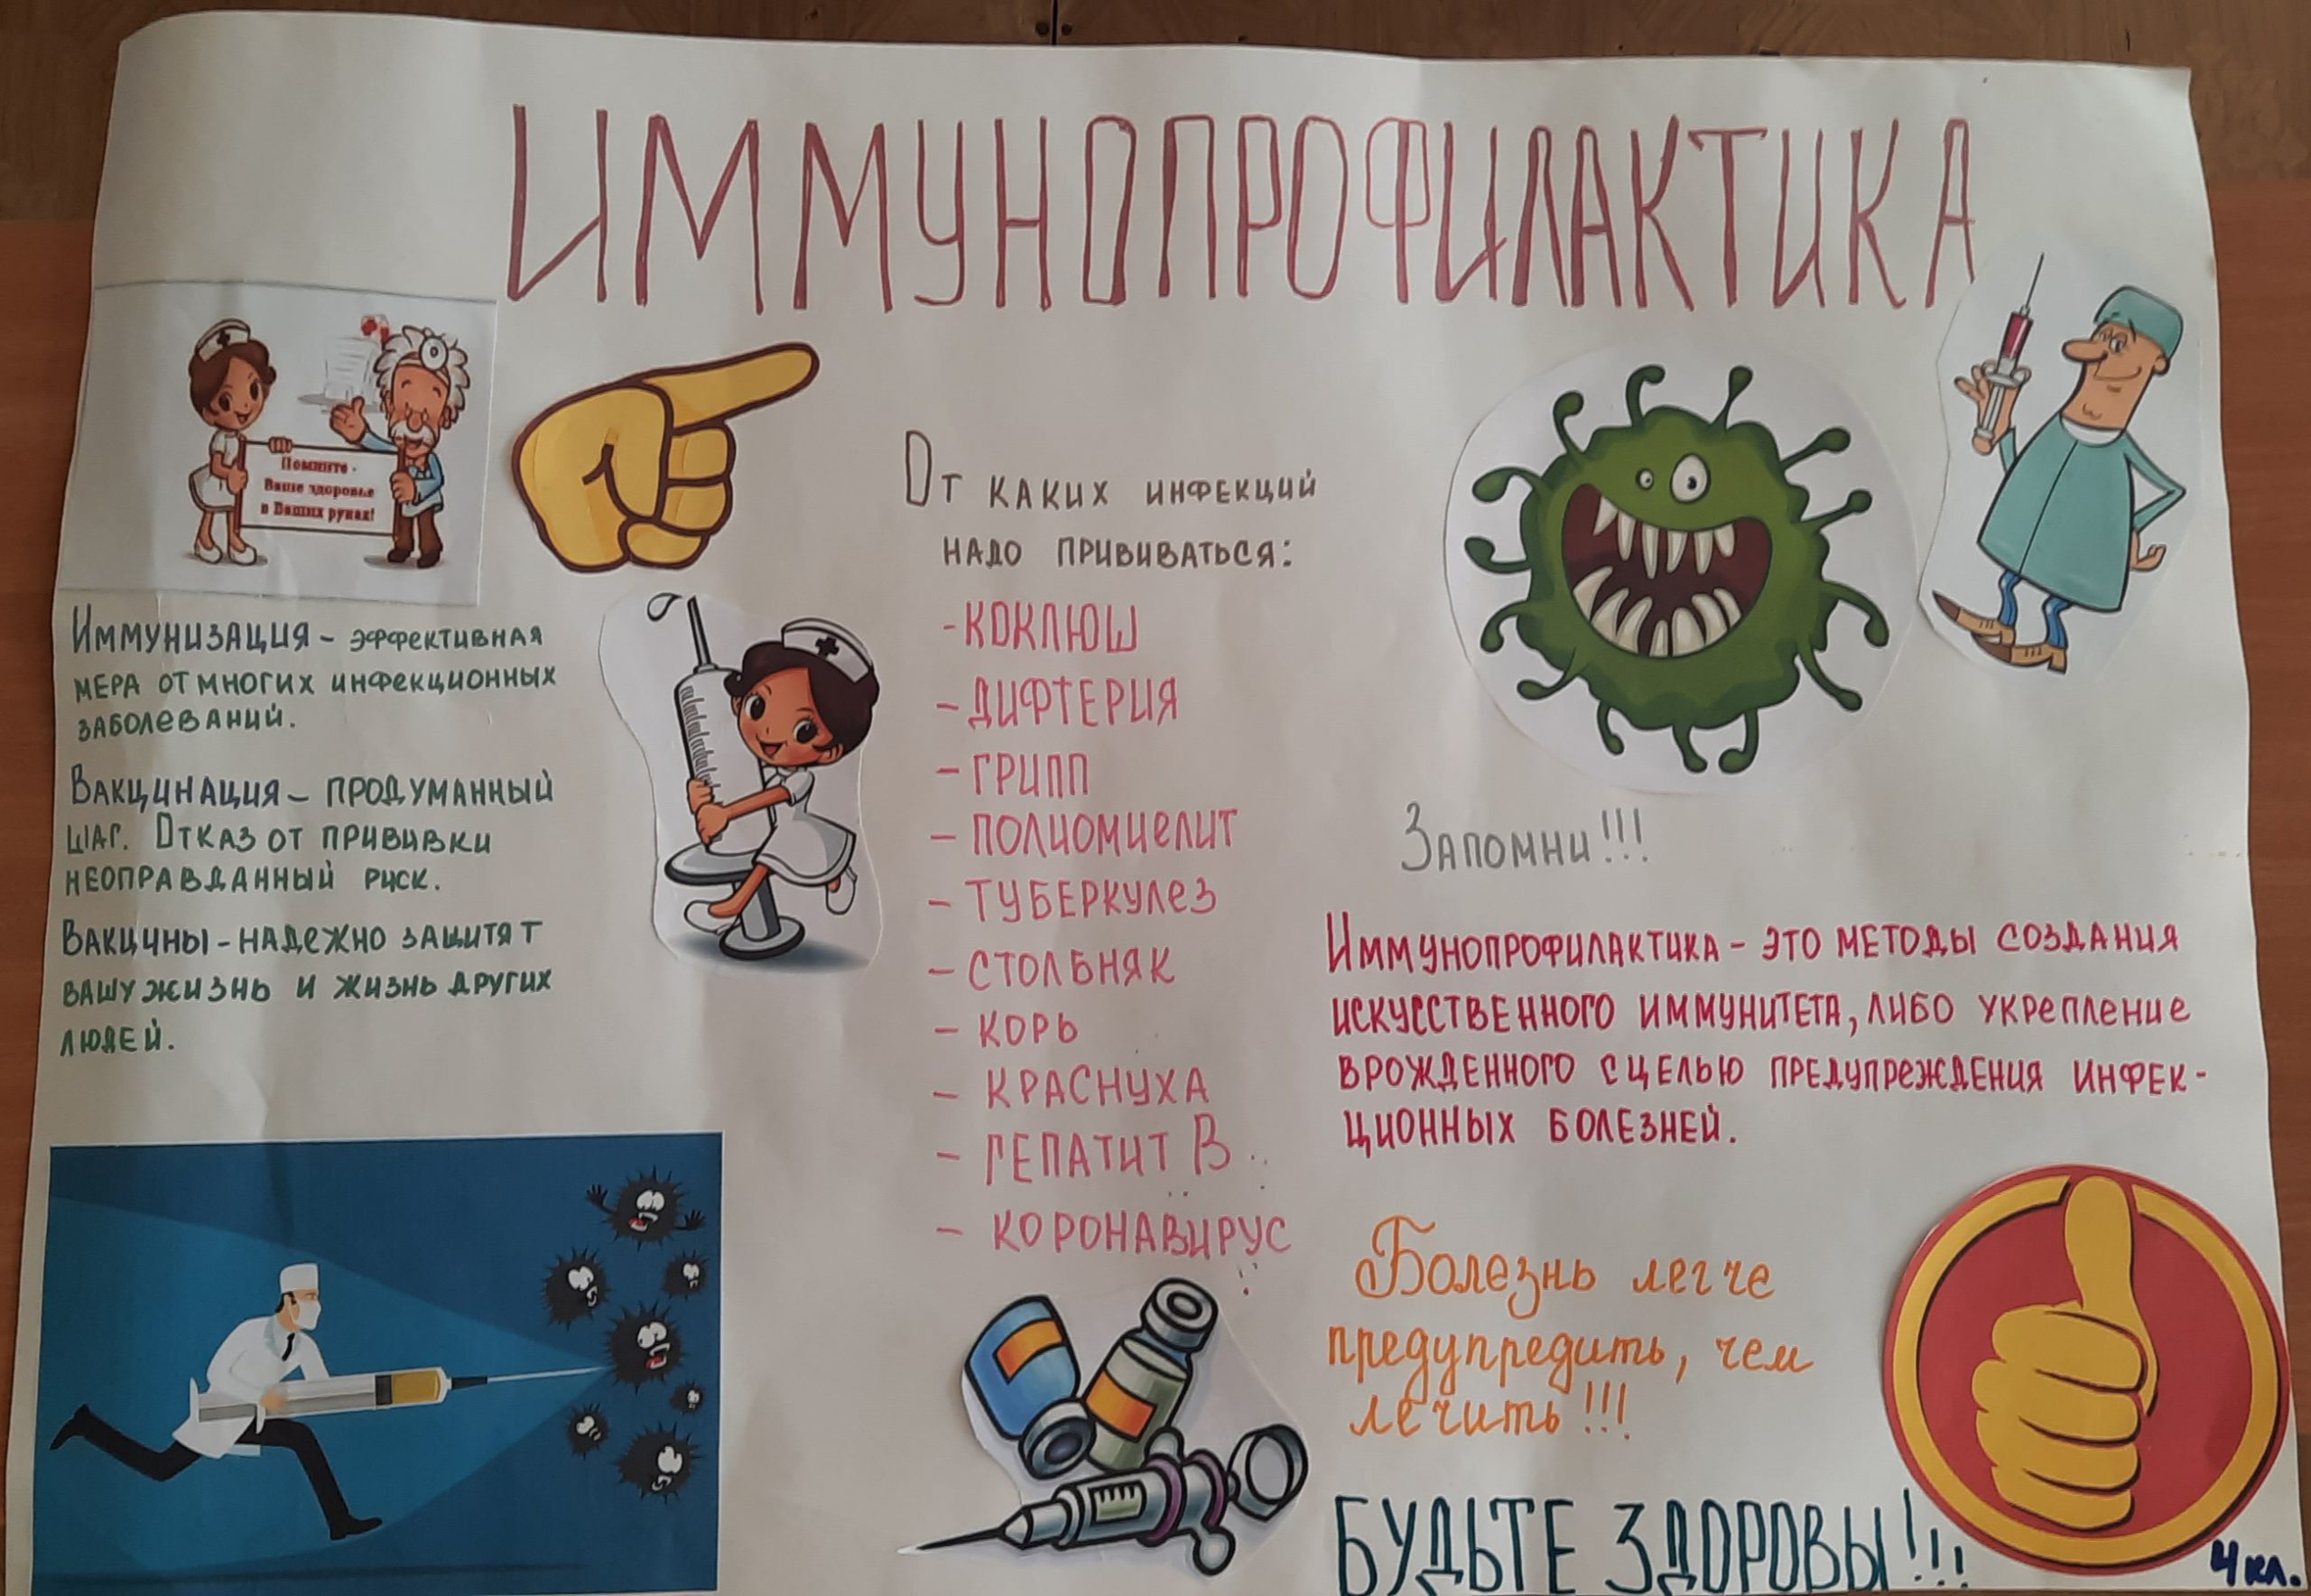 ИММУНОПРОФИЛАКТИКА
Помните -
Ваше здоровье
в Ваших руках!
Иммунизация – эффективная
мера от многих инфекционных
заболеваний.
Вакцинация – продуманный
шаг. Отказ от прививки
неоправданный риск.
Вакцины - надежно защитят
вашу жизнь и жизнь других
людей.
От каких инфекций
надо прививаться:
- коклюш
- дифтерия
- грипп
- полиомиелит
- туберкулез
- столбняк
- корь
- краснуха
- гепатит В
- коронавирус
Запомни!!!
Иммунопрофилактика – это методы создания
искусственного иммунитета, либо укрепление
врожденного с целью предупреждения инфек-
ционных болезней.
Болезнь легче
предупредить, чем
лечить!!!
БУДЬТЕ ЗДОРОВЫ!!!
4 кл.